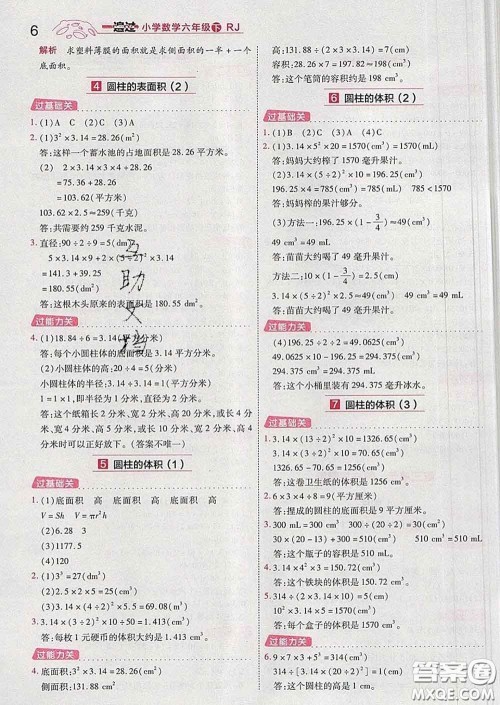 6
一遍过 小学数学六年级 下 RJ
解析 求塑料薄膜的面积就是求侧面积的一半+一个
底面积。
4 圆柱的表面积(2)
过基础关
1. (1)A C (2)C (3)A
2. (1)3²×3.14=28.26(m²)
答:这样一个蓄水池的占地面积是28.26平方米。
(2) 2×3.14×3×4+28.26
=75.36+28.26
=103.62(m²)
103.62×2.5≈259(千克)
答:共需要约259千克水泥。
3. 直径:90÷2÷9=5(dm)
5×3.14×9+2×(5÷2)²×3.14
=141.3+39.25
=180.55(dm²)
答:这根木头原来的表面积是180.55 dm²。
过能力关
4. (1)18.84÷6=3.14(平方分米)
答:每个小圆柱体的底面积是3.14平方分米。
(2)小圆柱体的高:2分米
小圆柱体的半径:3.14÷3.14=1(平方分米)
1=1×1,即半径为1分米,直径为2分米。
答:这个纸箱长2分米、宽2分米、高20分米,或长4分
米、宽2分米、高10分米,或长10分米、宽2分米、高4
分米时可以正好放下。(答案不唯一)
5 圆柱的体积(1)
过基础关
1. (1)底面积 高 底面积 高 底面积 高
V=Sh V=πr²h
(2)6.28 3
(3)1177.5
(4)120
2. (1)3³=27(dm³)
(2)3.14×(4÷2)²×5=62.8(dm³)
3. 3.14×(3÷2)²×2÷10=1.413(cm³)
答:每枚1元硬币的体积大约是1.413 cm³。
过能力关
4. 底面积:3.14×3²=28.26(cm²)
侧面积:131.88 cm²
高:131.88÷(2×3.14×3)=7(cm)
容积:28.26×7≈198(cm³)
答:这个笔筒的容积约是198 cm³。
6 圆柱的体积(2)
过基础关
1. (1)B (2)AC (3)C
2. (1)3.14×(10÷2)²×20=1570(cm³)
1570 cm³=1570 mL
答:妈妈大约榨了1570毫升果汁。
(2)3.14×(5÷2)²×10=196.25(cm³)
196.25×4=785(cm³)=785(mL) 785<1570
答:妈妈榨的果汁够分。
(3)方法一:196.25×(1-3/4)≈49(cm³)
49 cm³=49 mL
答:苗苗大约喝了49毫升果汁。
方法二:10×(1-3/4)=2.5(cm)
3.14×(5÷2)²×2.5≈49(cm³)
49 cm³=49 mL
答:苗苗大约喝了49毫升果汁。
过能力关
(4)196.25÷4=49.0625(cm³)
49.0625×(4+2)=294.375(cm³)
294.375 cm³=294.375 mL
答:这个小桶里装有294.375毫升冰水。
7 圆柱的体积(3)
过基础关
1. 3.14×(13÷2)²×10=1326.65(cm³)
1326.65 cm³
答:这卷卫生纸的体积是1326.65 cm³。
2. 6×3×4÷8=9(cm²)
答:捏成的圆柱的底面积是9平方厘米。
3. 300 mL=300 cm³ 300÷(20÷2)=30(cm²)
30×(15+2)=510(cm³) 510 cm³=510 mL
答:这个瓶子的容积是510 mL。
答:这个铁块的体积是150.72 cm³。
5. 314÷(2×3.14×5)=10(cm)
10²×3.14×5=1570(cm³)
答:每个盒子的体积是1570 cm³。
过能力关
6. 9×7×3+5³=314(cm³)
314÷[3.14×(20÷2)²]=1(cm)
互助文档
答案圈
MXQE.COM